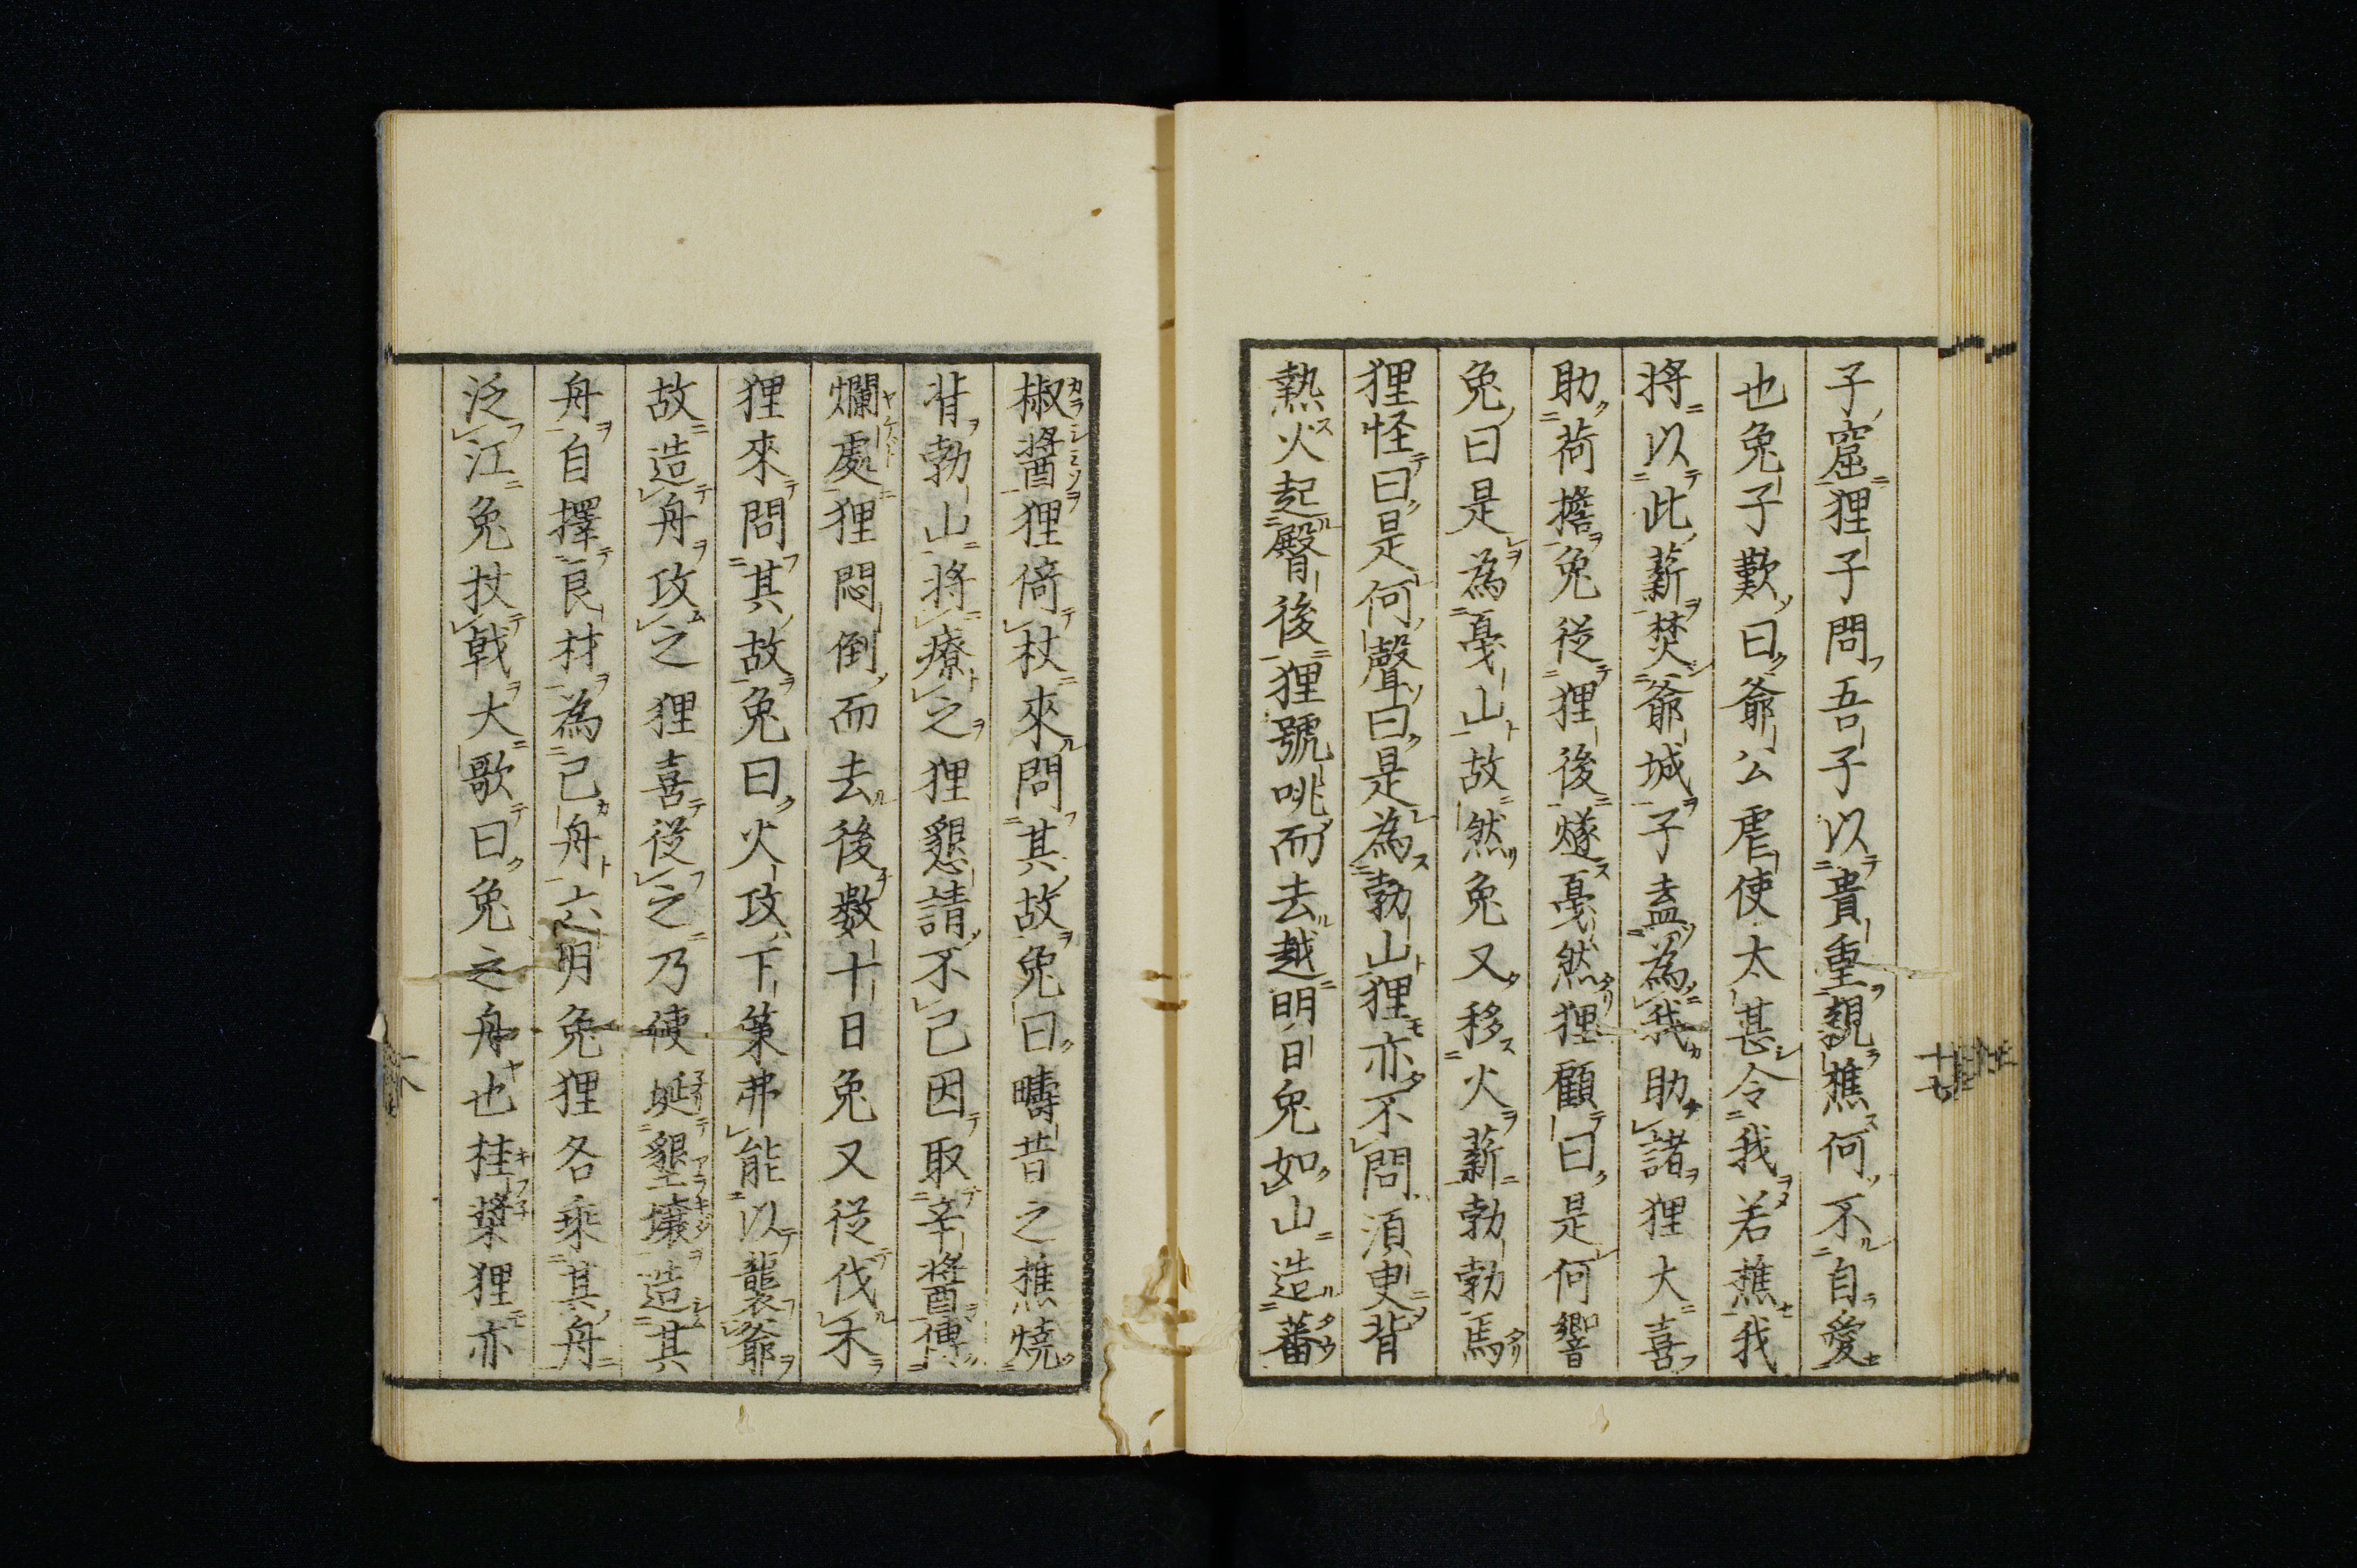 子窟狸子問吾子以貴重親樵何不自愛
也兔子歎曰爺公虐使太甚令我若蕉我
將以此薪焚爺城子盍為我助諸狸大喜
助荷擔兔從狸後燧戞然狸顧曰是何響
兔曰是為戞山故然兔又移火薪勃勃焉
狸怪曰是何聲曰是為勃山狸亦不問須臾背
熱火起臀後狸號咷而去越明日兔如山造蕃
椒醬狸倚杖來問其故兔曰疇昔之樵燒
背勃山將療之狸懇請不已因取辛醬傅
爛處狸悶倒而去後數十日兔又從伐禾
狸來問其故兔曰火攻下策弗能以襲爺
故造舟攻之狸喜從之乃使埏墾壤造其
舟自擇良材為己舟六明兔狸各乘其舟
泛江兔扙戟大歌曰兔之舟也桂槳狸亦
十七